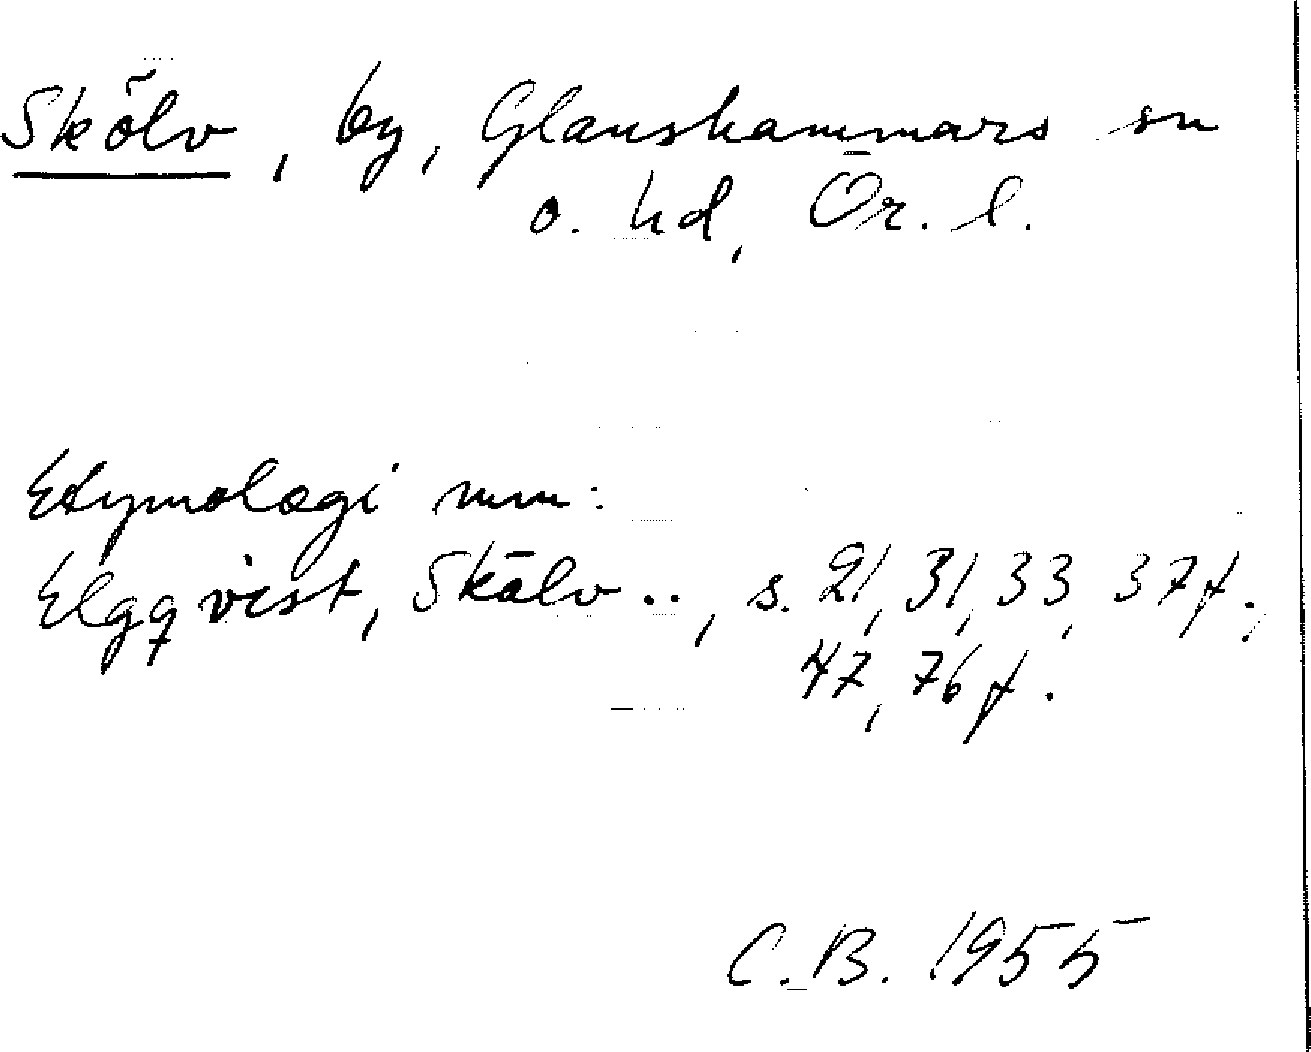 Skölv, by, Glanshammars sn
o. hd, Ör. l.
Etymologi mm:
Elgqvist, Skälv .., s. 21, 31, 33, 37f.,
47, 76f.
C.B. 1955